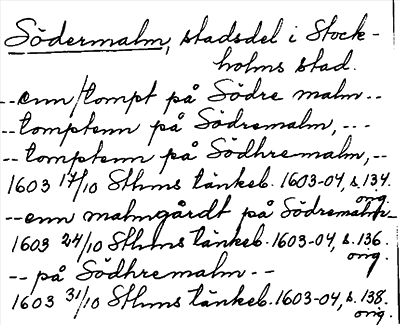 Södermalm, stadsdel i Stock-
holms stad.
--enn tompt på Södre malm--
--tomptenn på Södremalm,---
--tomptenn på Södhremalm,--
1603 17/10 Sthms tänkeb. 1603-04, s. 134.
orig.
--enn malmgårdt på Södremalm--
1603 24/10 Sthms tänkeb. 1603-04, s. 136.
orig.
--på Södhremalm--
1603 31/10 Sthms tänkeb. 1603-04, s. 138.
orig.